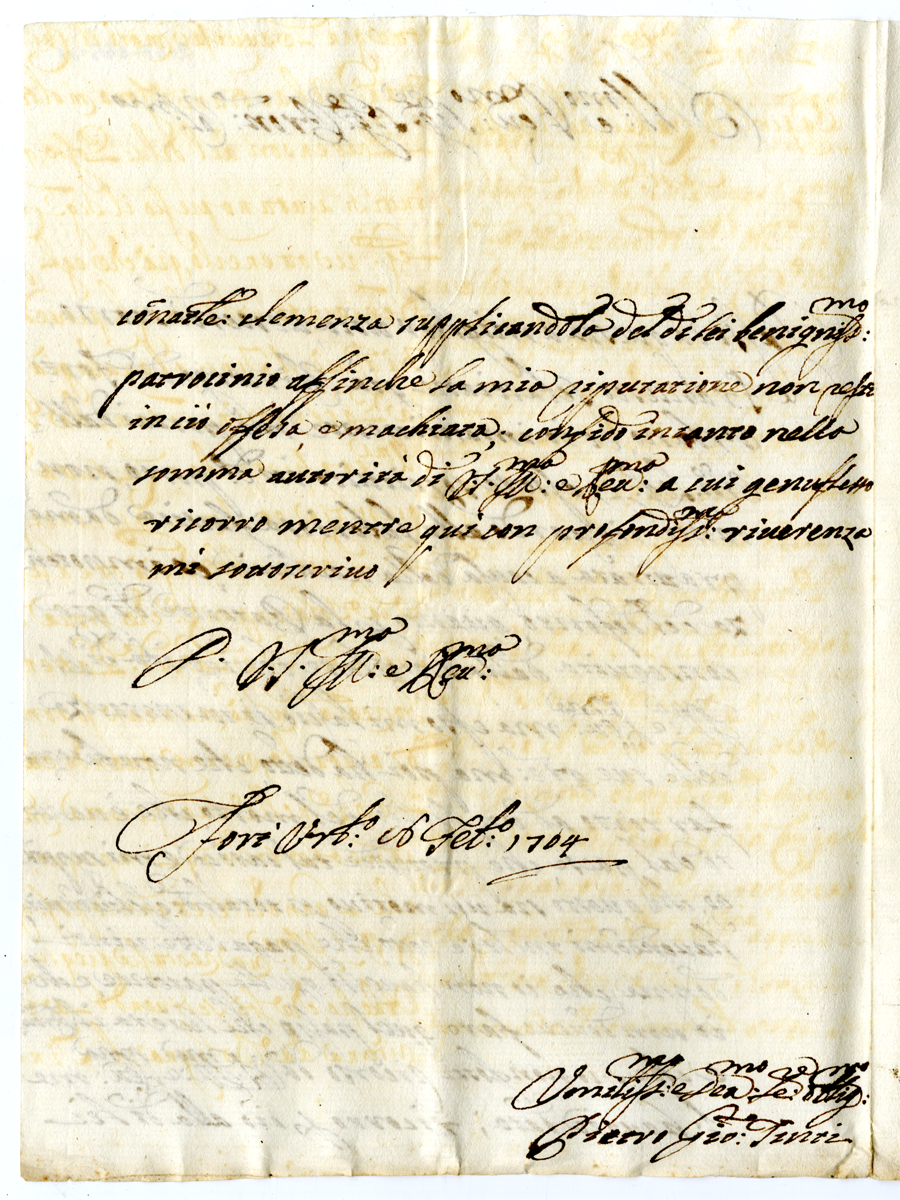 cōnarle: clemenza supplicandola del di lei benignisso:mo
patrocinio affinche la mia riputatione non resti
in ciò offesa e machiata, confido intanto nella
somma autorità di V:S: Ill:ma e Reu:ma a cui genuflesso
ricorro mentre qui con profondiss:ma riuerenza
mi sottoscriuo
D. V:S: Ill:ma e Reu:ma
Fort Urb:o 16 Feb:o 1704
Vmiliss:mo e Deu:mo Se:re Oblig:mo
Pietro Gio: Tinti